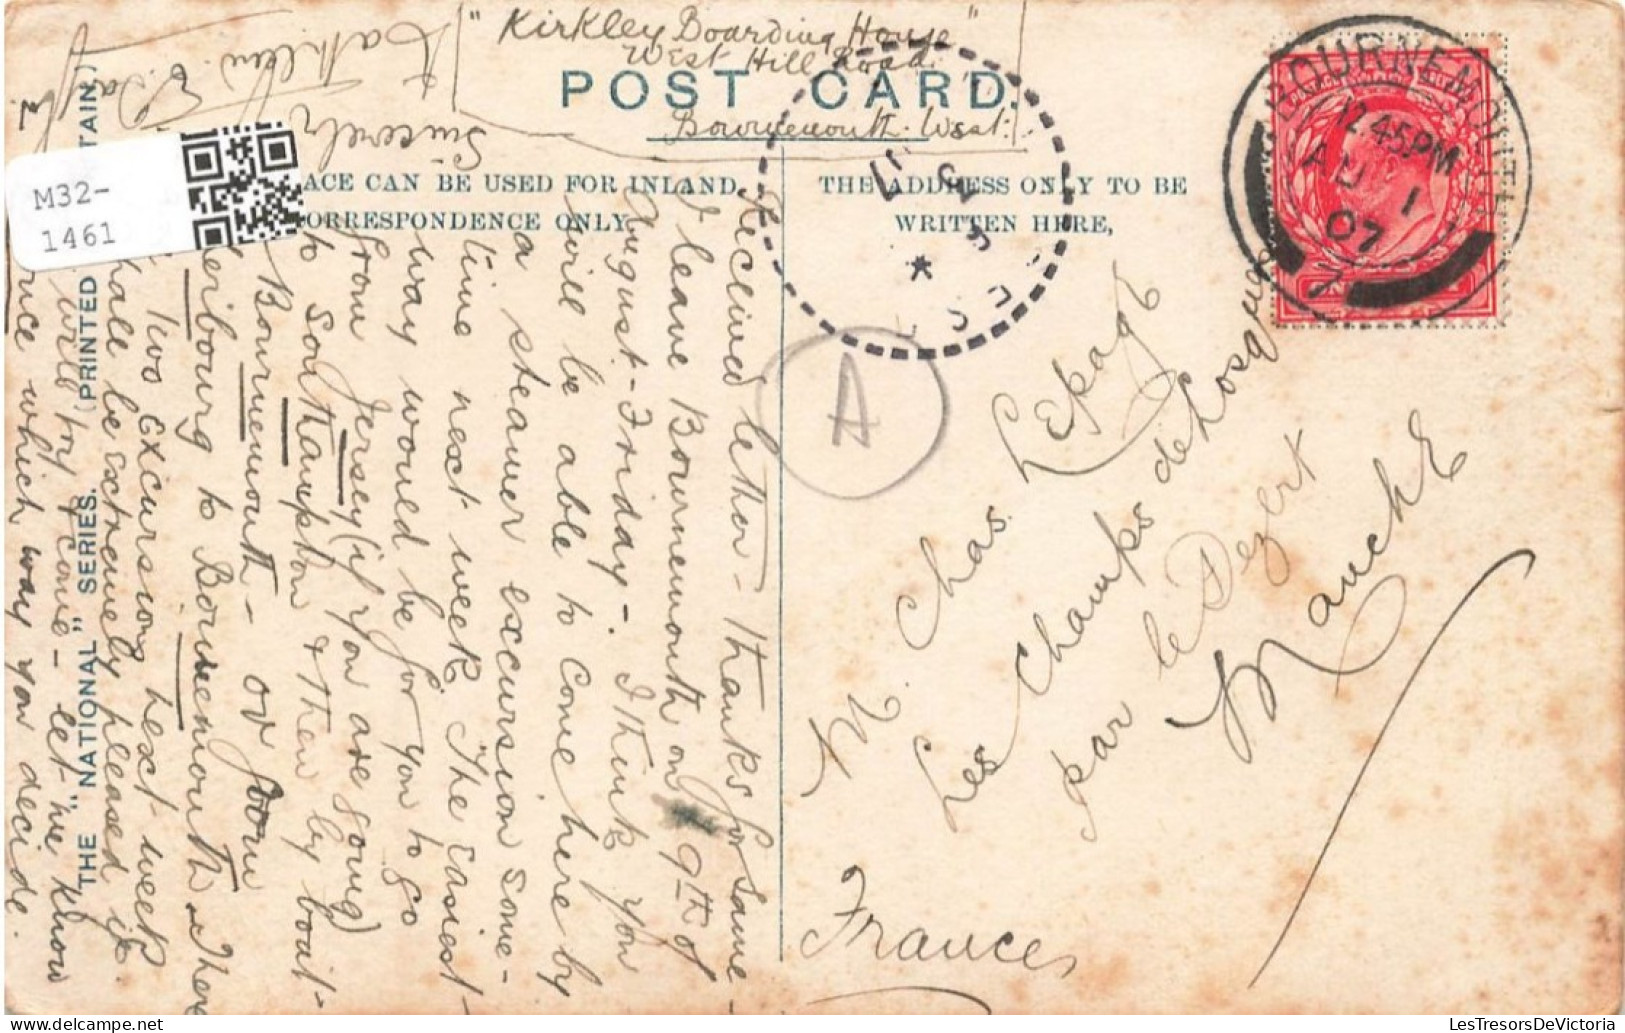 "Kirkley Boarding House"
West Hill Road
Bournemouth. West.
POST CARD.
ACE CAN BE USED FOR INLAND
ORRESPONDENCE ONLY.
THE ADDRESS ONLY TO BE
WRITTEN HERE,
BOURNEMOUTH
12.45PM
AU 1
07
Received letter - thanks for same -
I leave Bournemouth on 9th of
August - Friday - I think you
will be able to come here by
a steamer excursion some-
time next week. The easiest
way would be for you to go
from Jersey (if you are going)
to Southampton & then by boat -
Bournemouth - or from
erbourg to Bournemouth. There
two excursions next week
hall be extremely pleased if
will try & come - let me know
once which way you decide.
Sincerely
Kathleen E.
M. Chas. LEpage
Les Champs de Losque
par le Dézert
Manche
France
A
THE "NATIONAL" SERIES. (PRINTED
TAIN.)
M32-
1461
LesTresorsDeVictoria